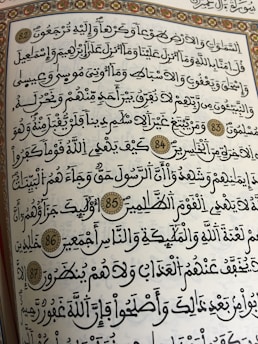 سورة آل عمران
السموات والارض طوعا وكرها وإليه ترجعون 82
قل امنا بالله وما أنزل علينا وما أنزل على إبرهيم وإسمعيل
وإسحق ويعقوب والاسباط وما أوتي موسى وعيسى
والنبيئون من ربهم لا نفرق بين أحد منهم ونحن له
مسلمون 83 ومن يبتغ غير الاسلم دينا فلن يقبل منه وهو
في الاخرة من الخسرين 84 كيف يهدي الله قوما كفروا
بعد إيمنهم وشهدوا أن الرسول حق وجاءهم البينت
لا يهدي القوم الظلمين 85 أولئك جزاؤهم أن
لعنة الله والملئكة والناس أجمعين 86 خلدين
لا يخفف عنهم العذاب ولا هم ينظرون 87 إلا
تابوا من بعد ذلك وأصلحوا فإن الله غفور رحيم